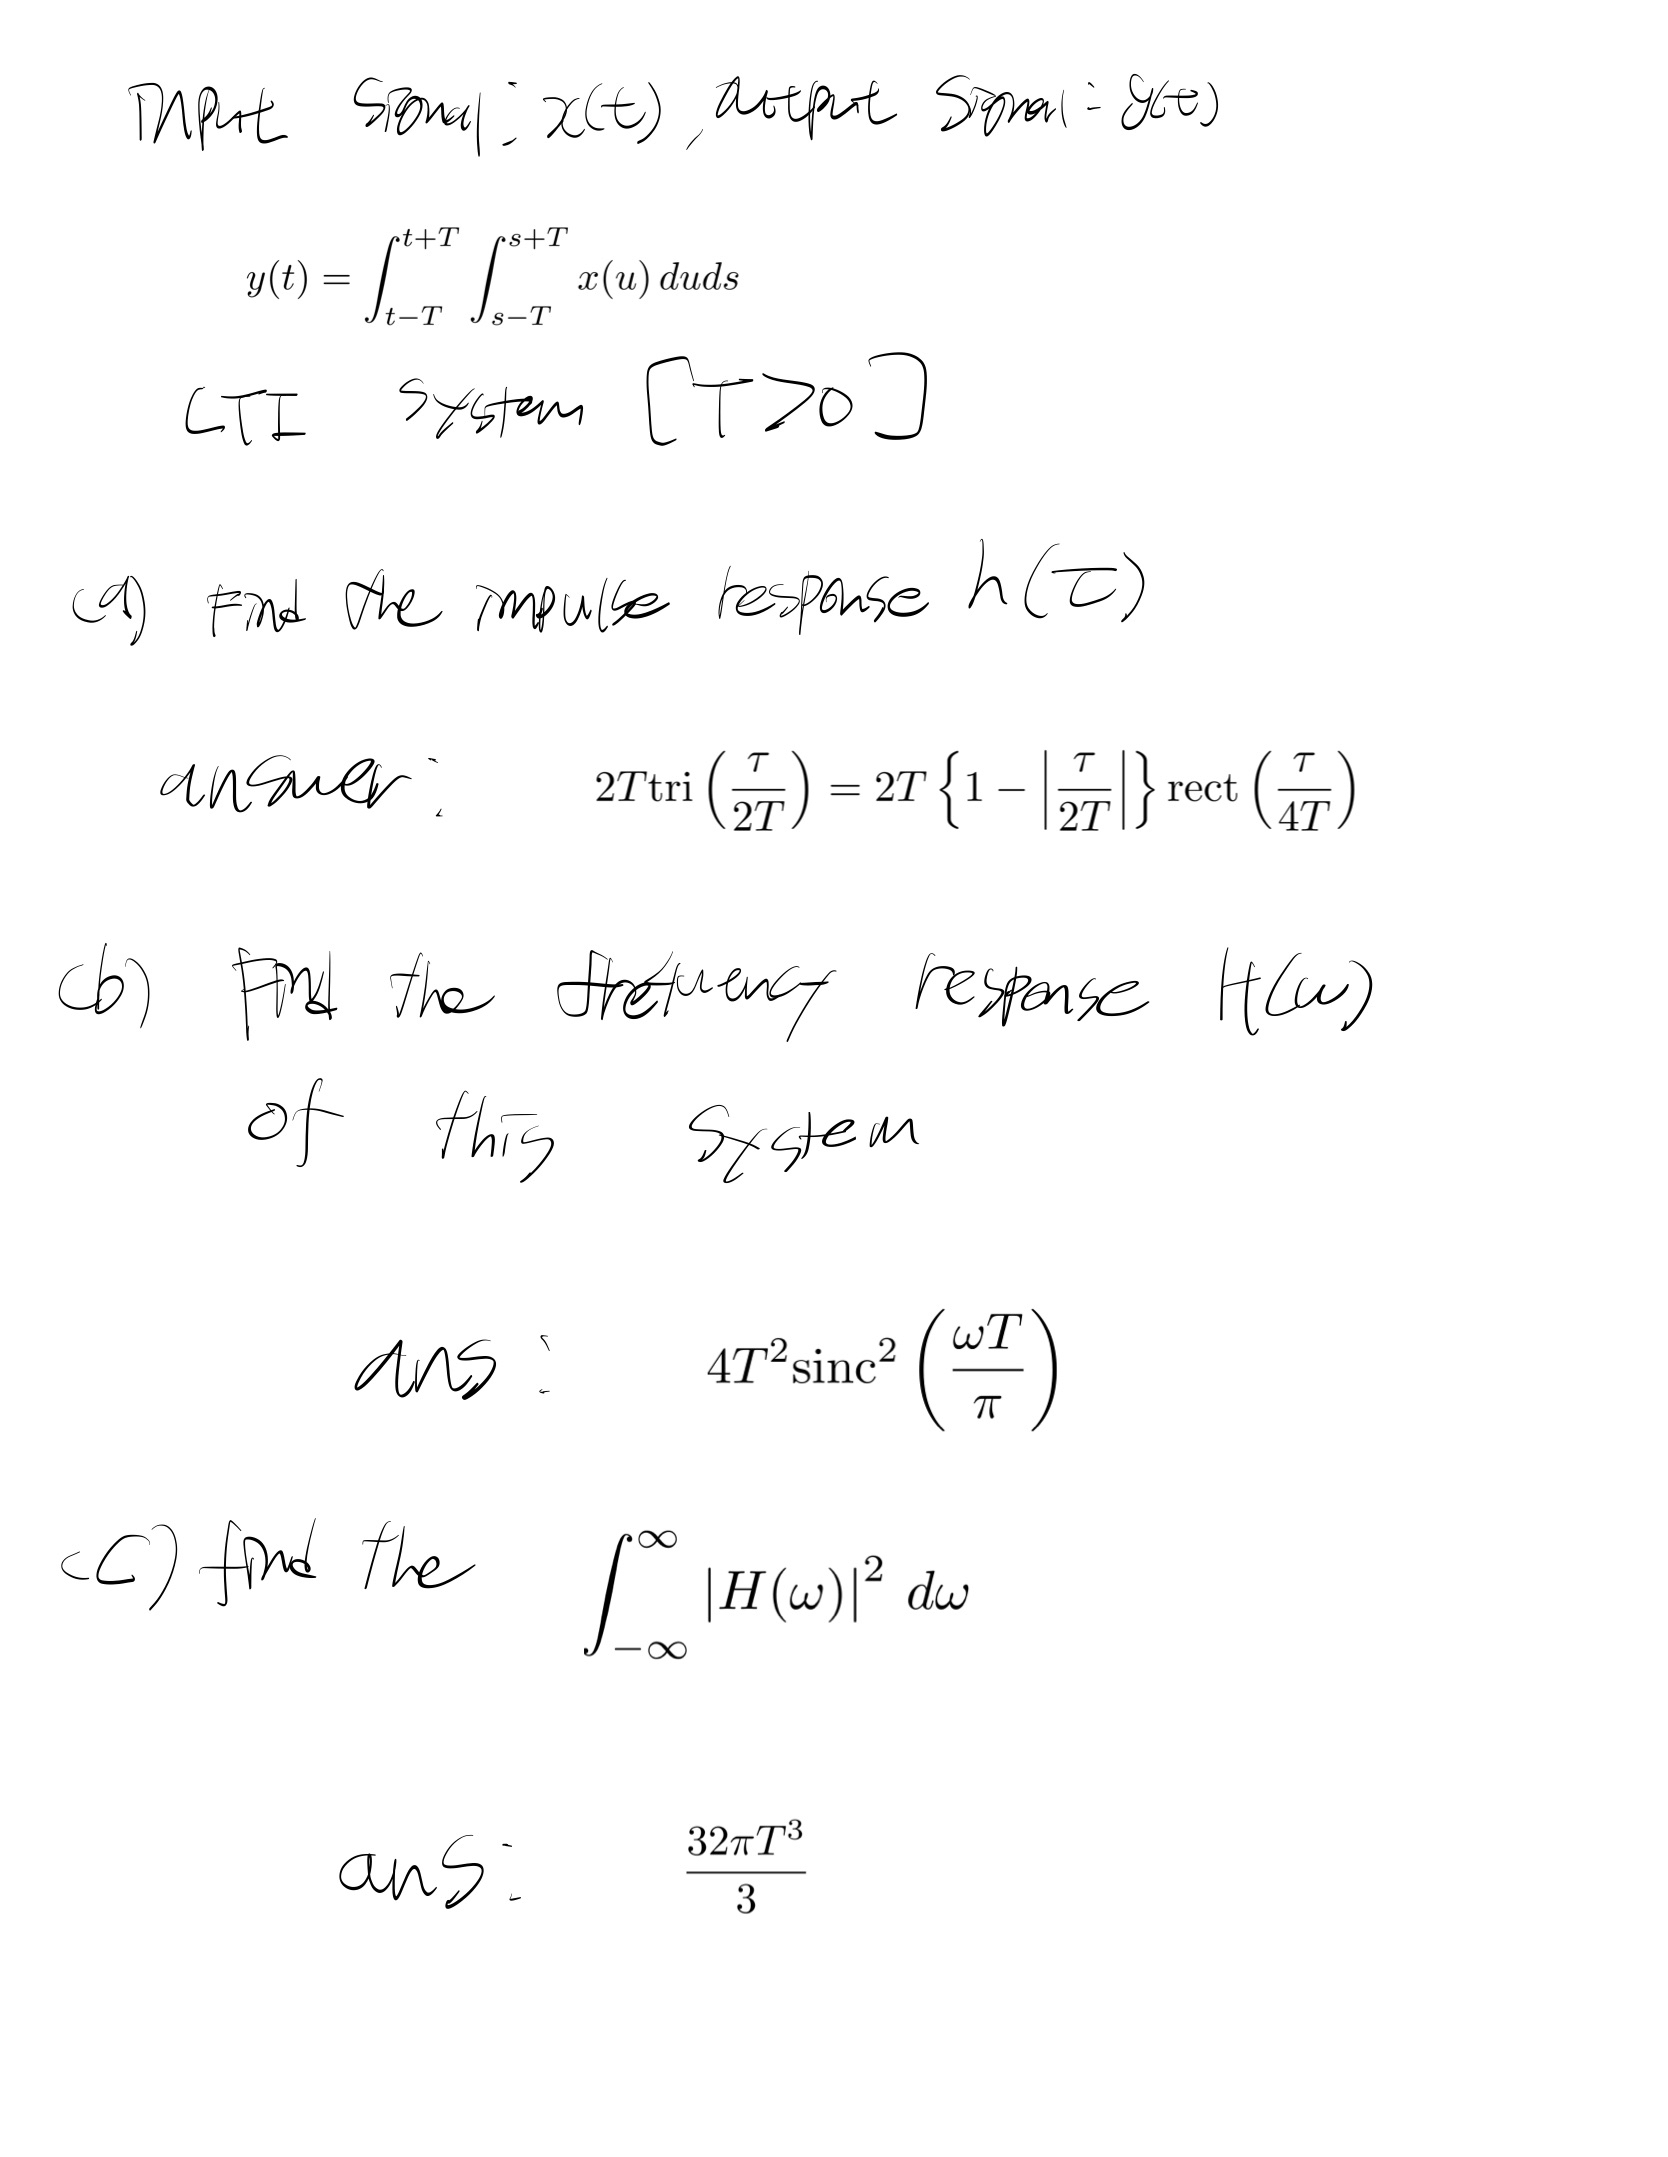 Input Signal: x(t), output Signal: y(t)
y(t) = ∫_{t−T}^{t+T} ∫_{s−T}^{s+T} x(u) duds
LTI system [T>0]
(a) Find the impulse response h(τ)
answer: 2Ttri(τ/2T) = 2T{1 − |τ/2T|}rect(τ/4T)
(b) Find the frequency response H(ω)
of this system
ans: 4T²sinc²(ωT/π)
(c) find the ∫_{−∞}^{∞} |H(ω)|² dω
ans: 32πT³/3